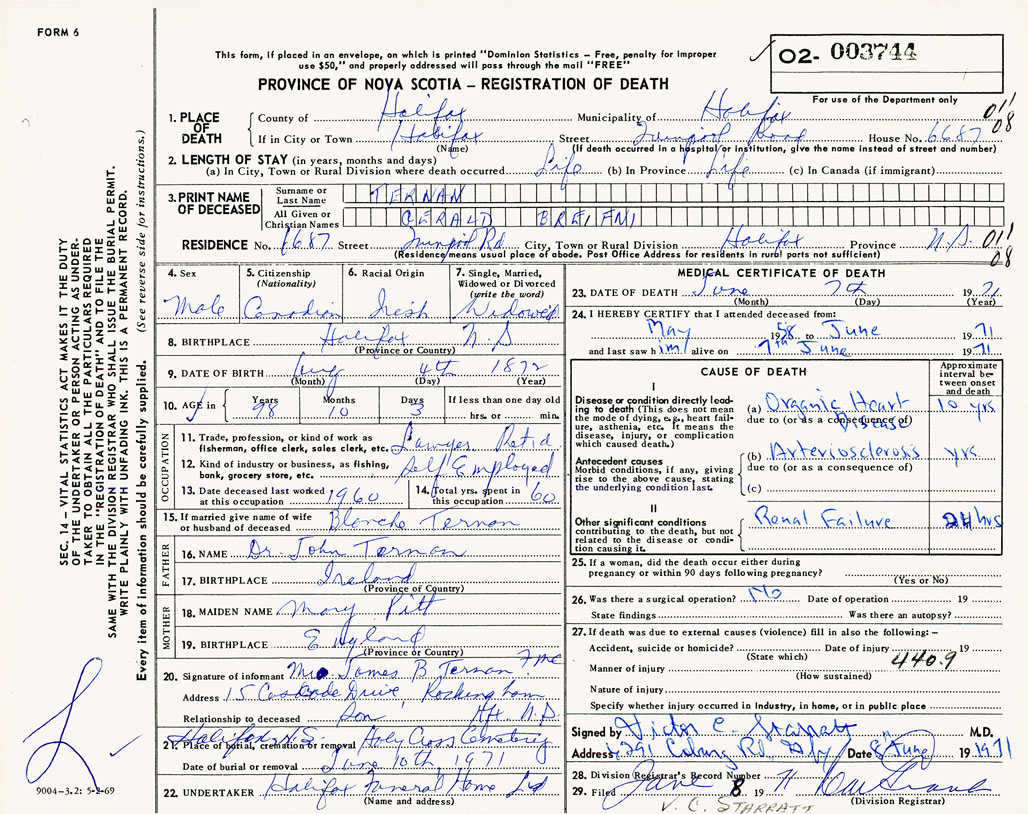 FORM 6
This form, if placed in an envelope, on which is printed "Dominion Statistics – Free, penalty for improper
use $50," and properly addressed will pass through the mail "FREE"
O2- 003744
For use of the Department only
PROVINCE OF NOVA SCOTIA – REGISTRATION OF DEATH
1. PLACE OF DEATH
County of Halifax Municipality of Halifax 011
If in City or Town Halifax Street Road House No. 6687 08
(Name) (If death occurred in a hospital or institution, give the name instead of street and number)
2. LENGTH OF STAY (in years, months and days)
(a) In City, Town or Rural Division where death occurred Life (b) In Province Life (c) In Canada (if immigrant)
3. PRINT NAME OF DECEASED
Surname or Last Name TERNAN
All Given or Christian Names GERALD BREIFNI
RESIDENCE No. 6687 Street Rd City, Town or Rural Division Halifax Province N.S. 011
(Residence means usual place of abode. Post Office Address for residents in rural parts not sufficient) 08
4. Sex
Male
5. Citizenship
(Nationality)
Canadian
6. Racial Origin
Irish
7. Single, Married,
Widowed or Divorced
(write the word)
Widowed
8. BIRTHPLACE Halifax N.S
(Province or Country)
9. DATE OF BIRTH Aug 4th 1872
(Month) (Day) (Year)
10. AGE in Years Months Days If less than one day old
98 10 3 hrs. or min.
OCCUPATION
11. Trade, profession, or kind of work as
fisherman, office clerk, sales clerk, etc. Lawyer Retid
12. Kind of industry or business, as fishing,
bank, grocery store, etc. Self Employed
13. Date deceased last worked
at this occupation 1960
14. Total yrs. spent in
this occupation 60
15. If married give name of wife
or husband of deceased Blanche Ternan
FATHER
16. NAME Dr. John Ternan
17. BIRTHPLACE Ireland
(Province or Country)
MOTHER
18. MAIDEN NAME Mary Pitt
19. BIRTHPLACE England
(Province or Country)
20. Signature of informant James B Ternan
Address 15 Cascade Drive, Rockingham
Relationship to deceased Son Hfx. N.S.
Halifax N.S.
21. Place of burial, cremation or removal Holy Cross Cemetery
Date of burial or removal June 10th, 1971
22. UNDERTAKER Halifax Funeral Home Ltd
(Name and address)
MEDICAL CERTIFICATE OF DEATH
23. DATE OF DEATH June 7th 1971
(Month) (Day) (Year)
24. I HEREBY CERTIFY that I attended deceased from:
May 1958 to June 1971
and last saw him alive on 7th June 1971
CAUSE OF DEATH
Approximate
interval be-
tween onset
and death
I
Disease or condition directly lead-
ing to death (This does not mean
the mode of dying, e.g., heart fail-
ure, asthenia, etc. It means the
disease, injury, or complication
which caused death.)
(a) Organic Heart Disease 10 yrs
due to (or as a consequence of)
Antecedent causes
Morbid conditions, if any, giving
rise to the above cause, stating
the underlying condition last.
(b) Arteriosclerosis yrs
due to (or as a consequence of)
(c)
II
Other significant conditions
contributing to the death, but not
related to the disease or condi-
tion causing it.
Renal Failure 24 hrs
25. If a woman, did the death occur either during
pregnancy or within 90 days following pregnancy?
(Yes or No)
26. Was there a surgical operation? No Date of operation 19
State findings Was there an autopsy?
27. If death was due to external causes (violence) fill in also the following:–
Accident, suicide or homicide? Date of injury 19
(State which) 440.9
Manner of injury
(How sustained)
Nature of injury
Specify whether injury occurred in industry, in home, or in public place
Signed by Victor C. Starratt M.D.
Address Coburg Rd. Date 8 June 19 1971
28. Division Registrar's Record Number
29. Filed June 8 19 71
(Division Registrar)
V. C. STARRATT
SEC. 14 – VITAL STATISTICS ACT MAKES IT THE DUTY
OF THE UNDERTAKER OR PERSON ACTING AS UNDER-
TAKER TO OBTAIN ALL THE PARTICULARS REQUIRED
IN THE "REGISTRATION OF DEATH" AND TO FILE THE
SAME WITH THE DIVISION REGISTRAR WHO SHALL ISSUE THE BURIAL PERMIT.
WRITE PLAINLY WITH UNFADING INK. THIS IS A PERMANENT RECORD.
Every item of information should be carefully supplied. (See reverse side for instructions.)
9004-3.2: 5-2-69